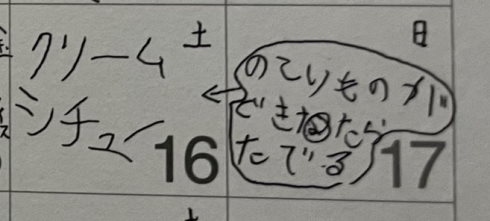 土
クリーム
シチュー
16
日
のこりものが
できたら
たべる
17